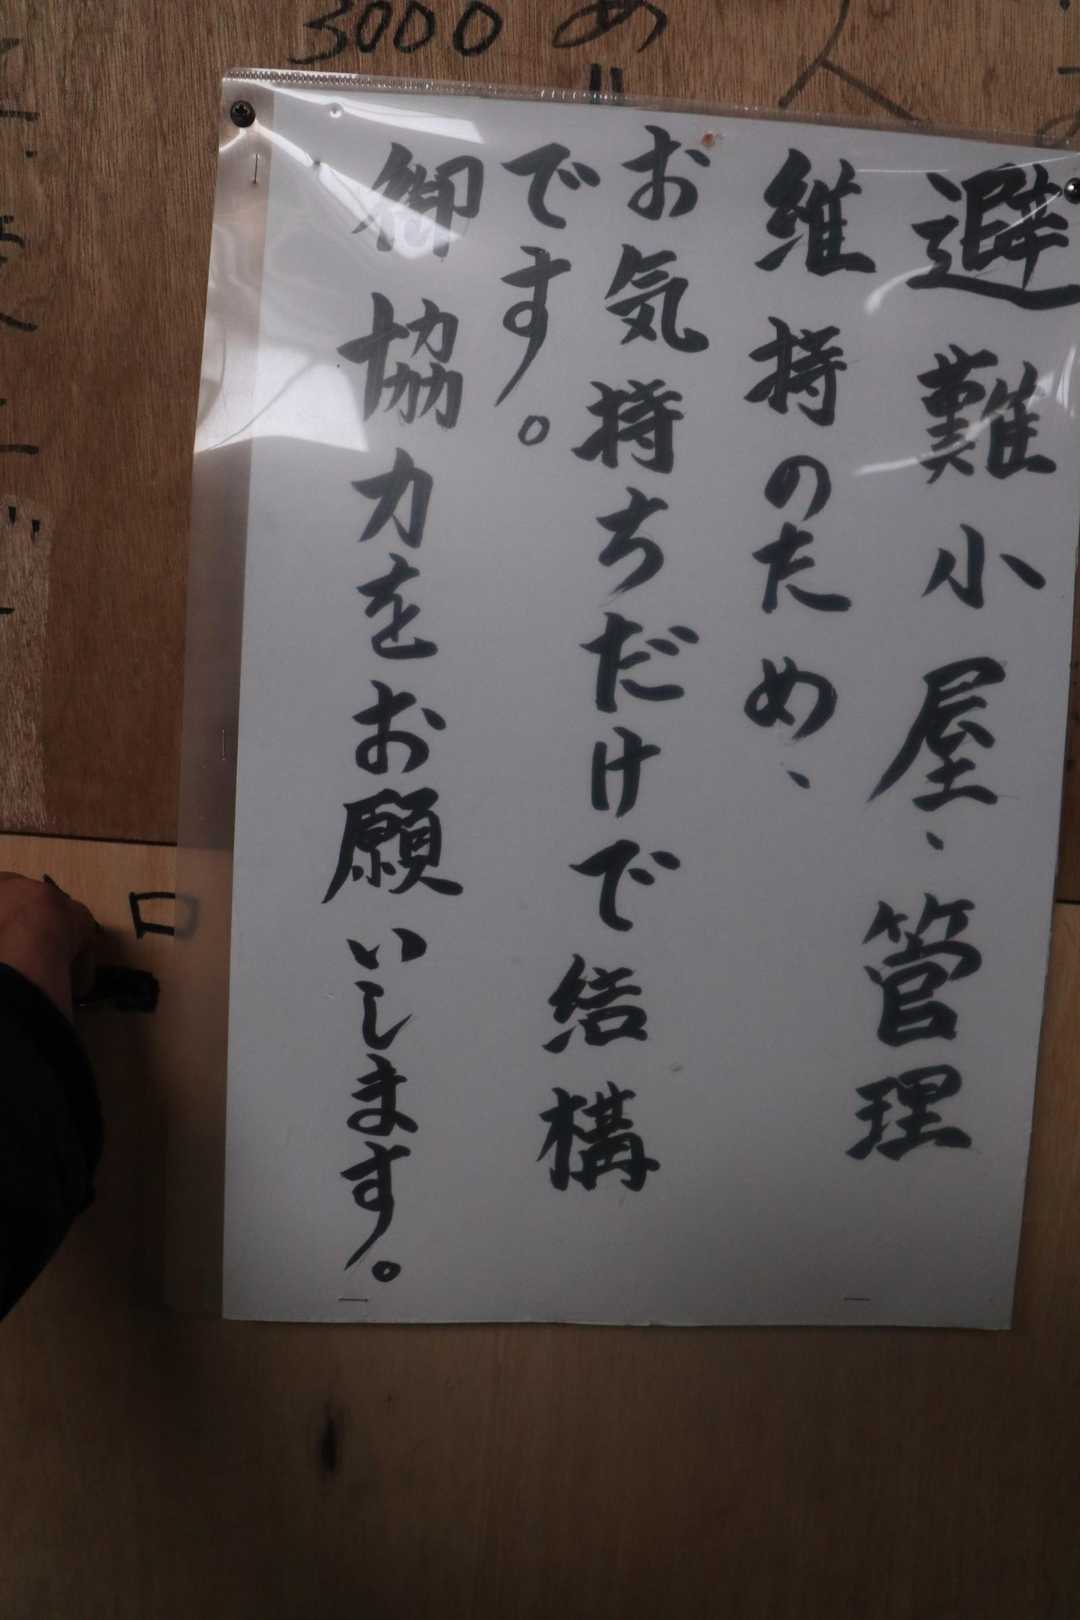 避難小屋、管理
維持のため、
お気持ちだけで結構
です。
御協力をお願いします。
3000